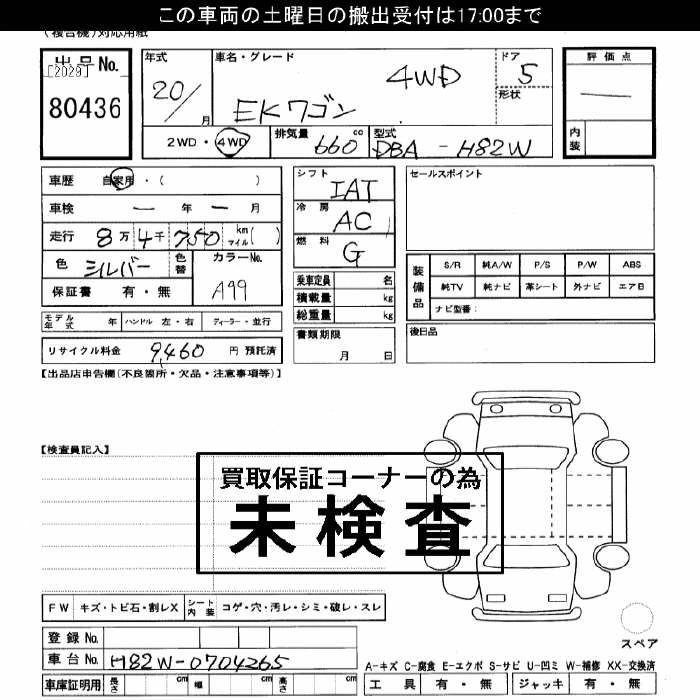 この車両の土曜日の搬出受付は17:00まで
(複合機)対応用紙
出品No.
[2029]
80436
年式
20/
月
車名・グレード
4WD
EKワゴン
ドア
5
形状
評価点
―
内装
2WD・4WD
排気量
660 cc
型式
DBA - H82W
車歴 自家用・( )
車検 ― 年 ― 月
走行 8万 4千 750 km マイル( )
色 シルバー 色替
カラーNo.
A99
保証書 有・無
シフト
IAT
冷房
AC
燃料
G
乗車定員 名
積載量 kg
総重量 kg
書類期限
月 日
セールスポイント
装備品
S/R 純A/W P/S P/W ABS
純TV 純ナビ 革シート 外ナビ エアB
ナビ型番:
後日品
モデル年式 年 ハンドル 左・右 ディーラー・並行
リサイクル料金 9,460 円 預託済
【出品店申告欄(不良箇所・欠品・注意事項等)】
【検査員記入】
買取保証コーナーの為
未検査
FW キズ・トビ石・割レX シート内装 コゲ・穴・汚レ・シミ・破レ・スレ
スペア
登録No.
車台No. H82W-0704265
車庫証明用 長さ cm 幅 cm 高さ cm
A-キズ C-腐食 E-エクボ S-サビ U-凹ミ W-補修 XX-交換済
工具 有・無 ジャッキ 有・無